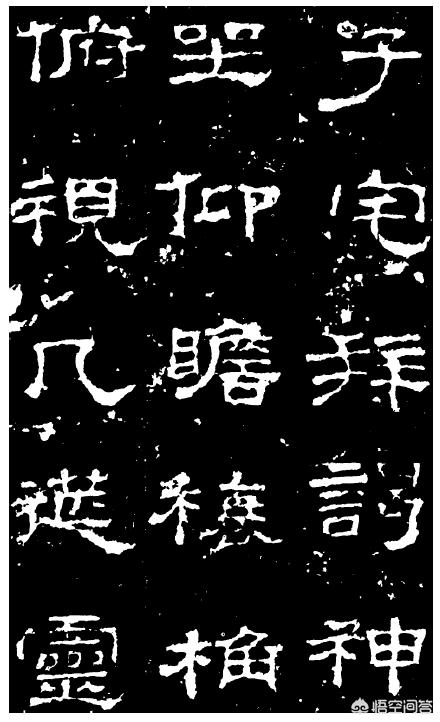 子宅拜謁神
坐仰瞻榱桷
俯視几筵靈
悟空问答